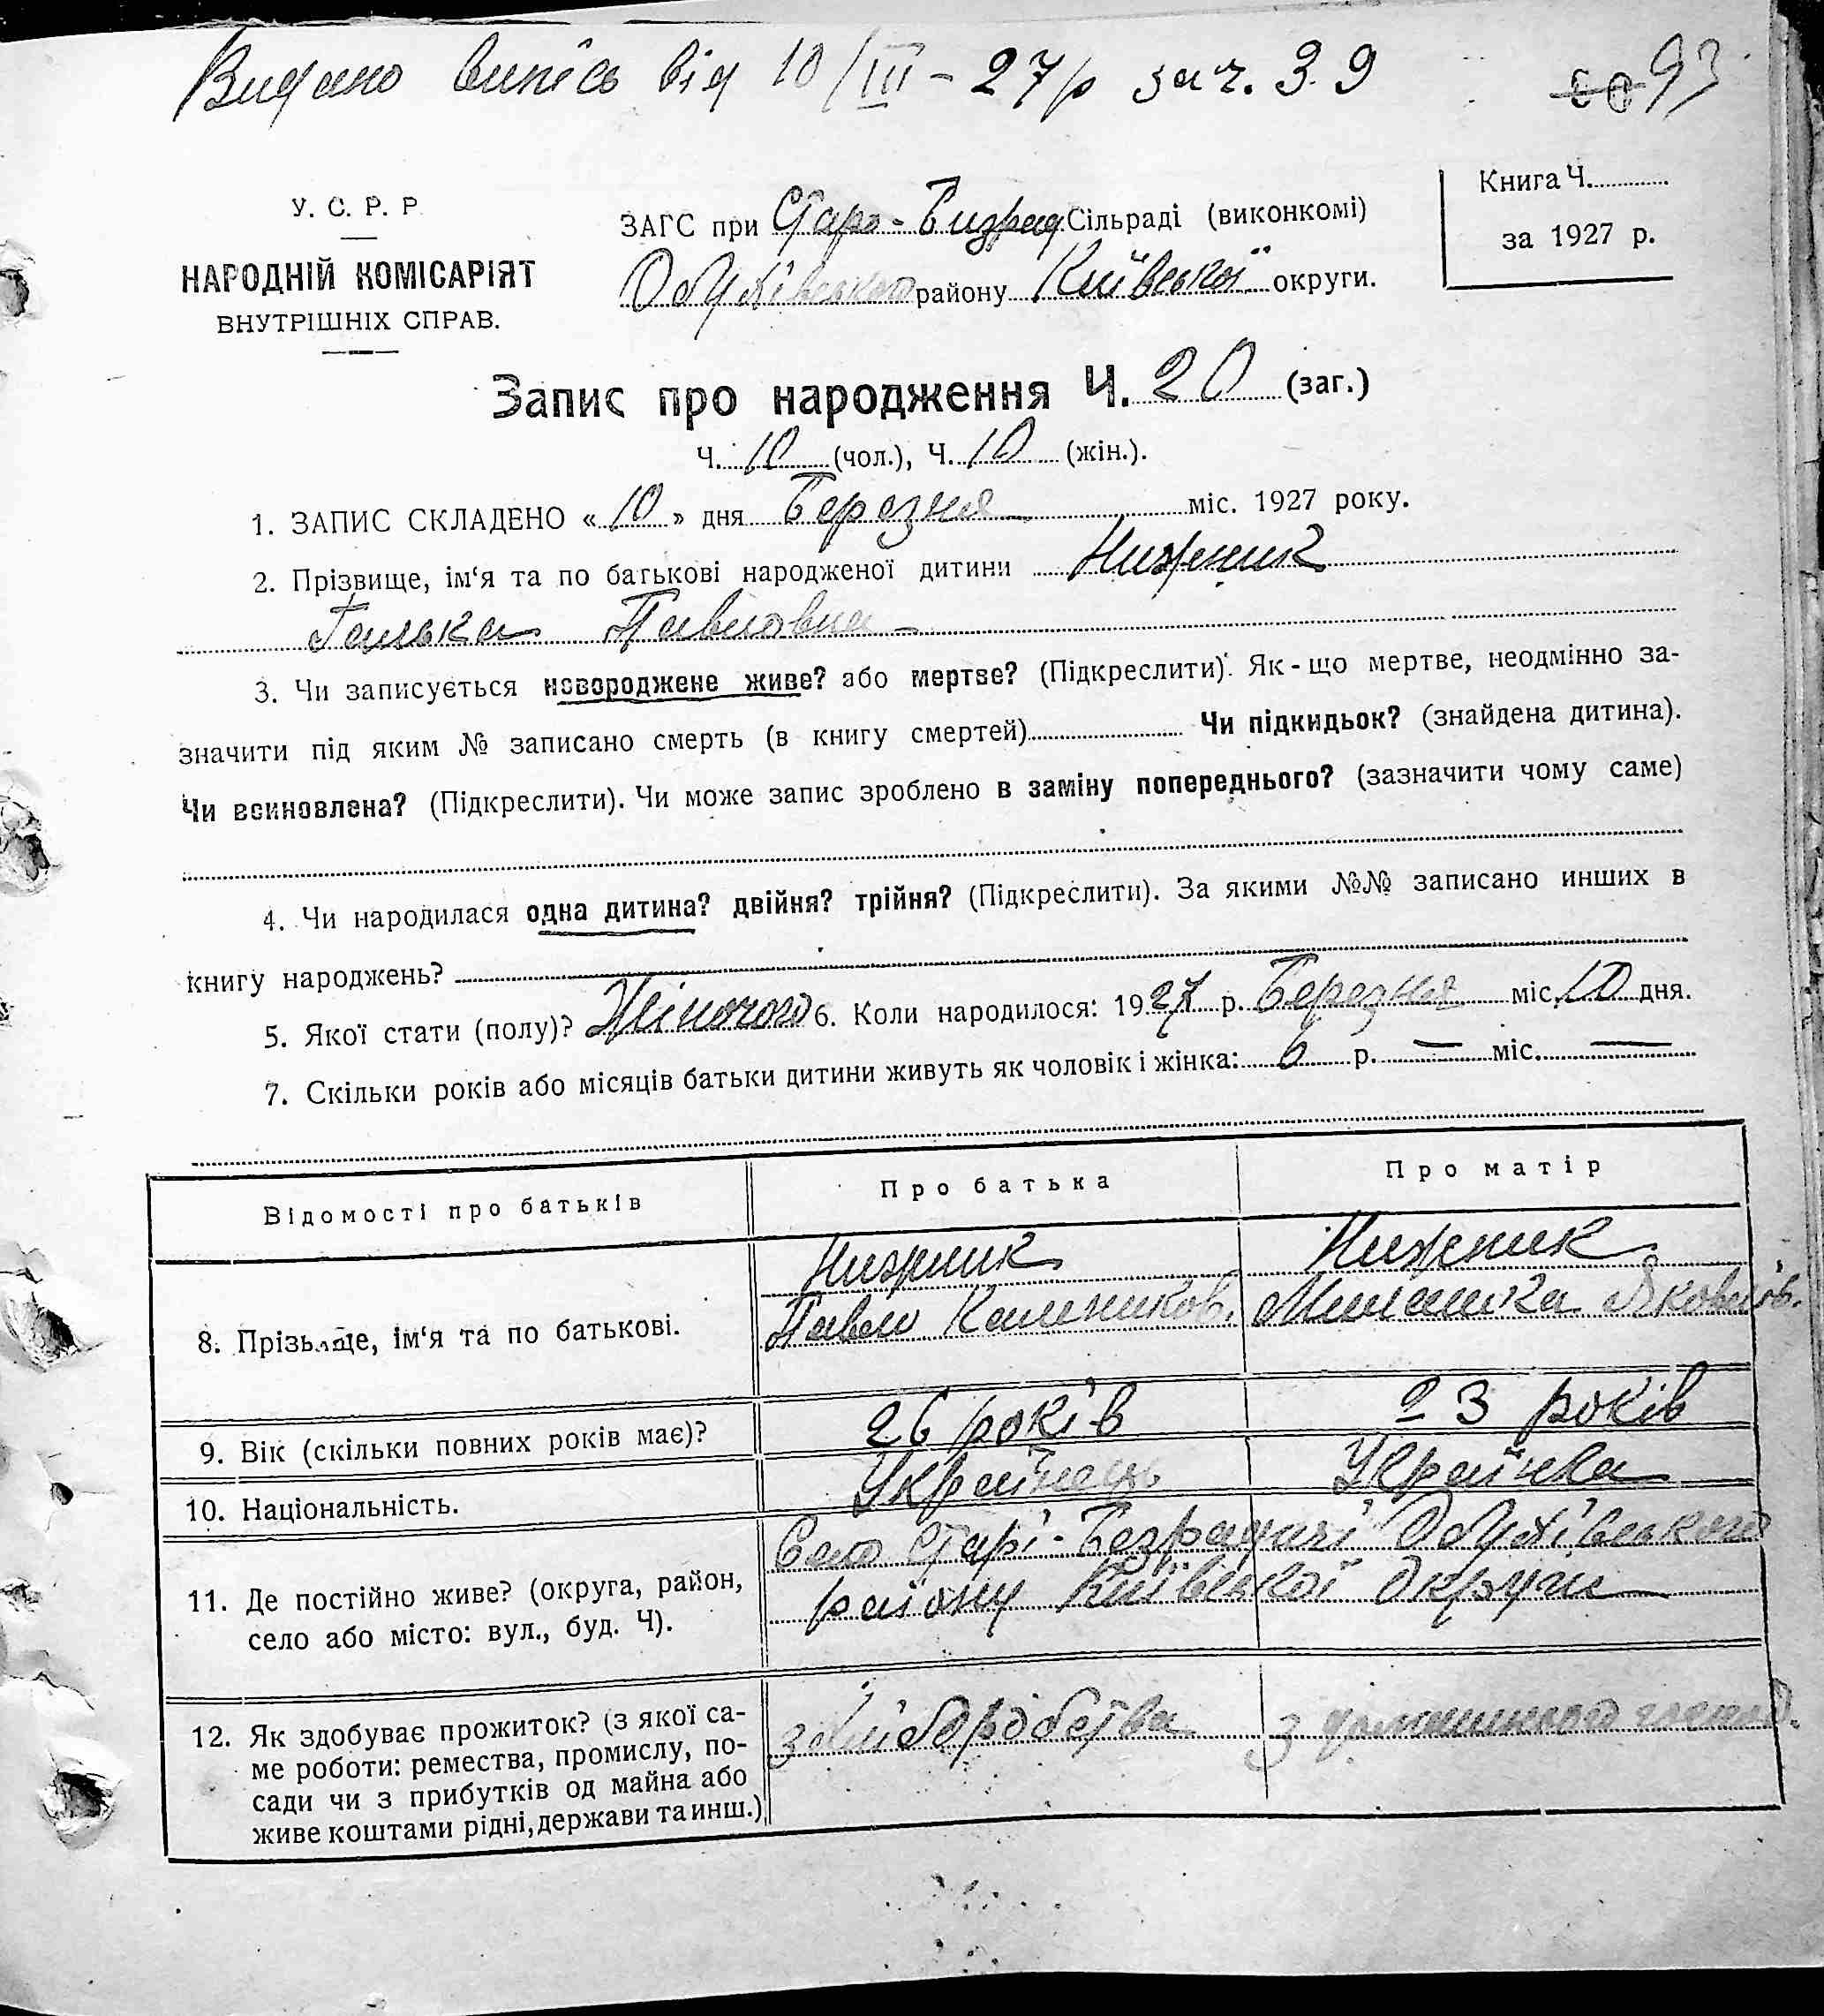 Видано випісь від 10/III - 27р за ч. 39
93
У. С. Р. Р
НАРОДНІЙ КОМІСАРІЯТ
ВНУТРІШНІХ СПРАВ.
ЗАГС при Старо-Бизрад Сільраді (виконкомі)
Обухівського району Київської округи.
Книга Ч.
за 1927 р.
Запис про народження Ч. 20 (заг.)
Ч. 10 (чол.), Ч. 10 (жін.).
1. ЗАПИС СКЛАДЕНО « 10 » дня Березня міс. 1927 року.
2. Прізвище, ім‘я та по батькові народженої дитини Нижник
Галька Павловна
3. Чи записується новороджене живе? або мертве? (Підкреслити). Як-що мертве, неодмінно за-
значити під яким № записано смерть (в книгу смертей) Чи підкидьок? (знайдена дитина).
Чи всиновлена? (Підкреслити). Чи може запис зроблено в заміну попереднього? (зазначити чому саме)
4. Чи народилася одна дитина? двійня? трійня? (Підкреслити). За якими №№ записано инших в
книгу народжень?
5. Якої стати (полу)? Жіночого 6. Коли народилося: 1927 р. Березня міс. 10 дня.
7. Скільки років або місяців батьки дитини живуть як чоловік і жінка: 6 р. — міс. —
Відомості про батьків Про батька Про матір
Нижник Нижник
8. Прізвище, ім‘я та по батькові. Павло Калеников. Миланка Яковлів.
9. Вік (скільки повних років має)? 26 років 23 років
10. Національність. Українець Українка
Село Старі-Безрадичі Обухівського
11. Де постійно живе? (округа, район, району Київської Округи
село або місто: вул., буд. Ч).
12. Як здобуває прожиток? (з якої са- з хліборобства з домашнього господ.
ме роботи: ремества, промислу, по-
сади чи з прибутків од майна або
живе коштами рідні, держави та инш.)